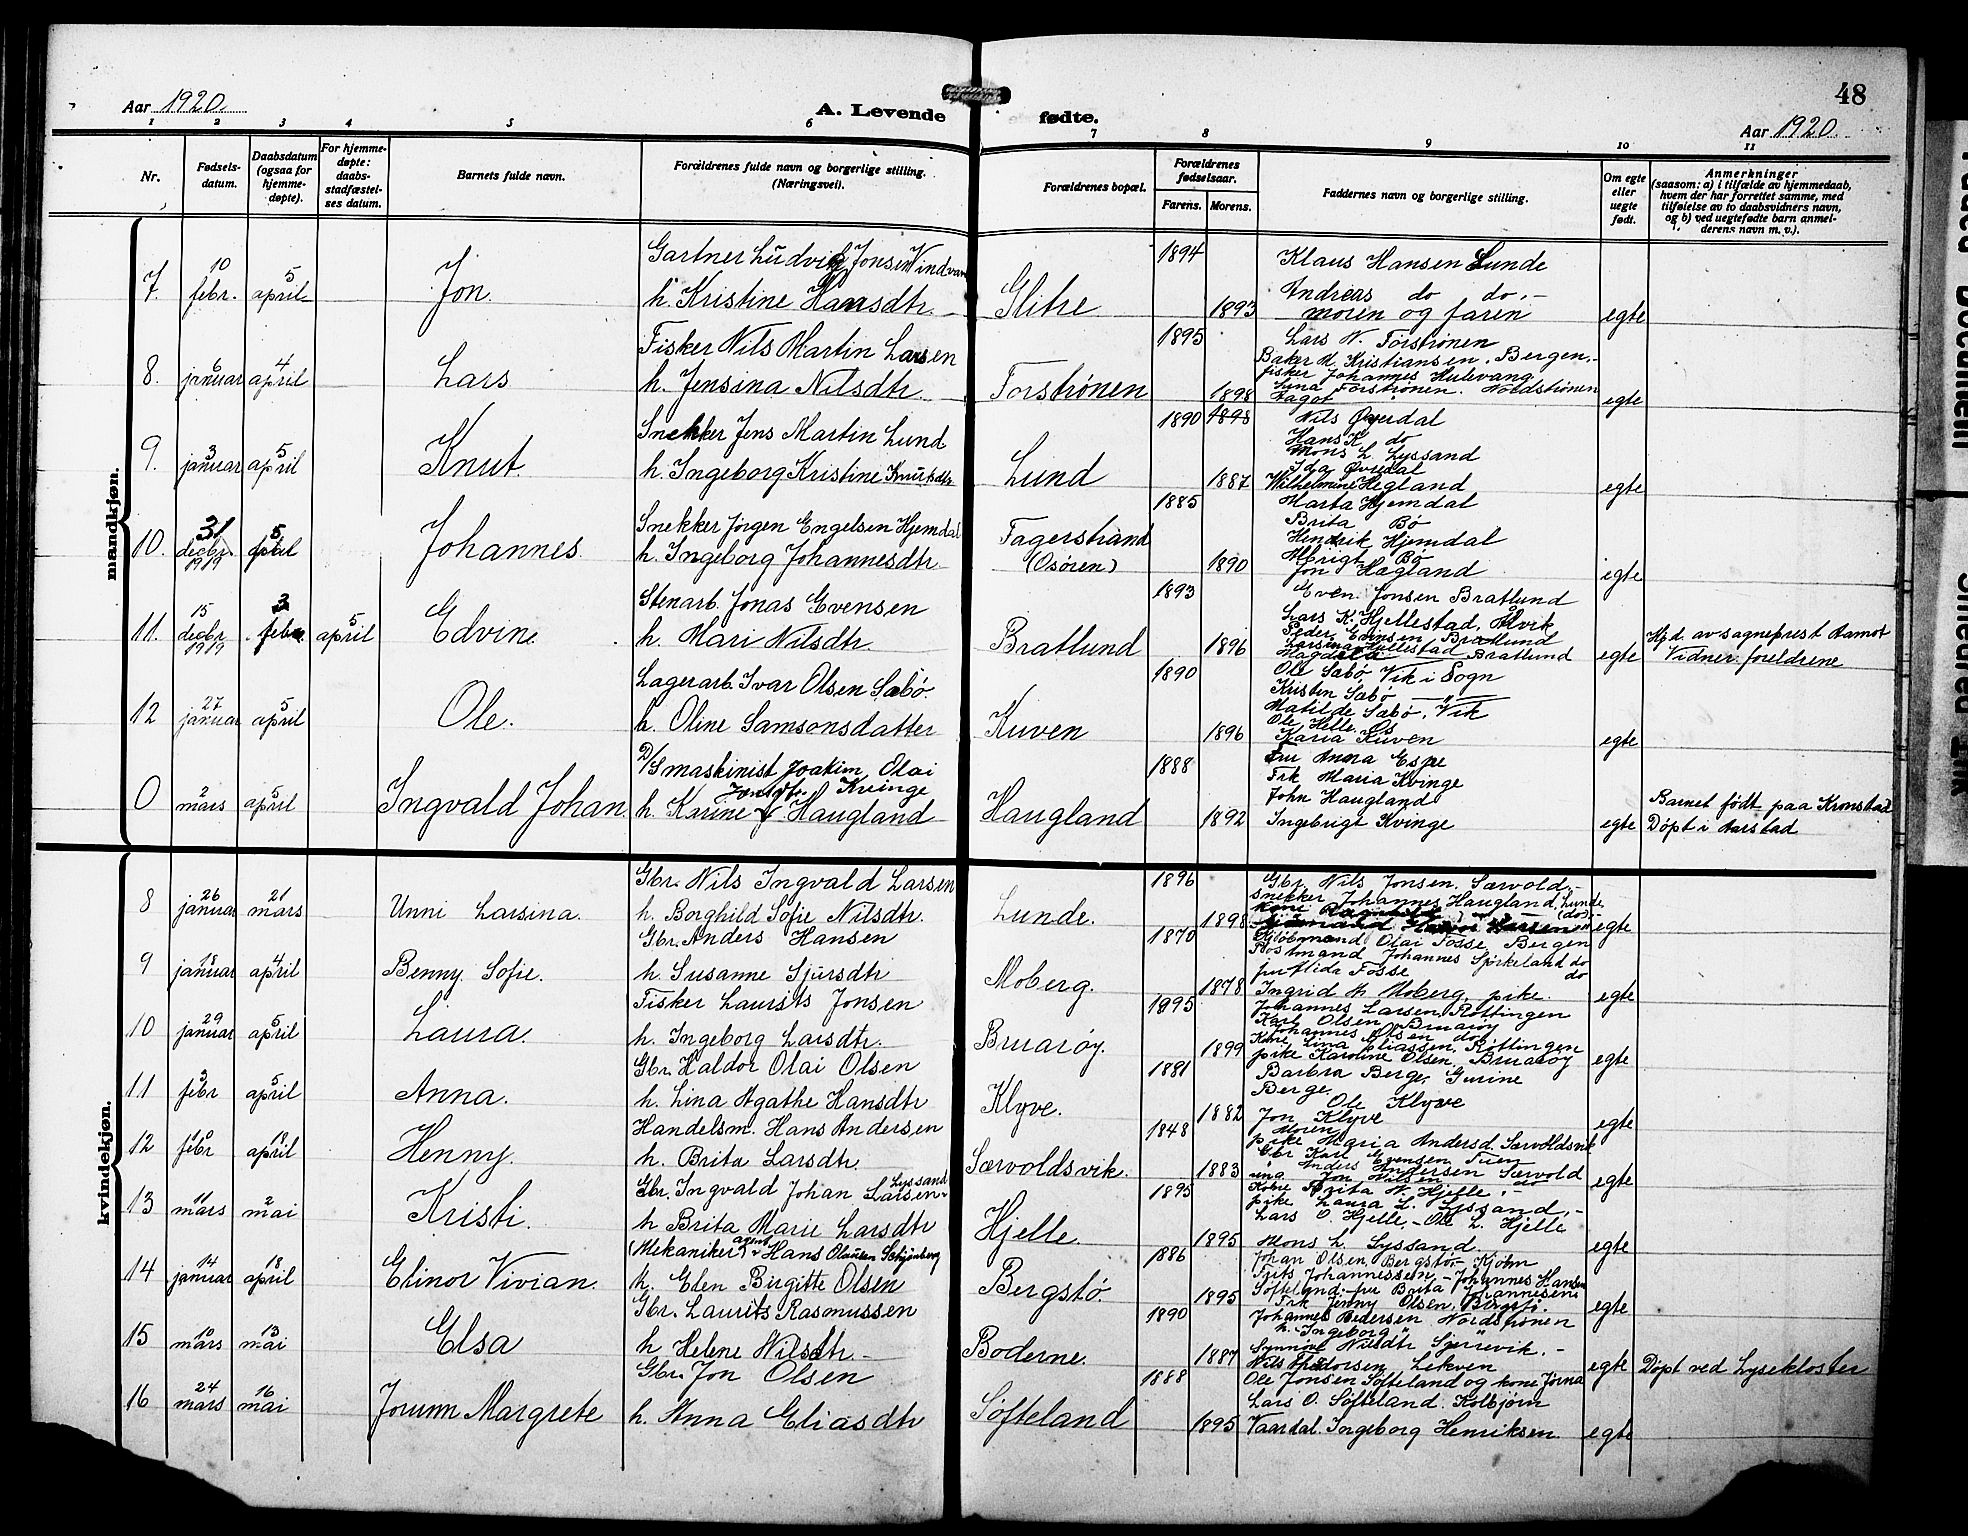 Aar 1920.
A. Levende fødte.
48
Aar 1920.
1 2 3 4 5 6 7 8 9 10 11
Nr.
Fødsels-
datum.
Daabsdatum
(ogsaa for
hjemme-
døpte).
For hjemme-
døpte:
daabs-
stadfæstel-
ses datum.
Barnets fulde navn.
Forældrenes fulde navn og borgerlige stilling.
(Næringsvei).
Forældrenes bopæl.
Forældrenes
fødselsaar.
Farens. Morens.
Faddernes navn og borgerlige stilling.
Om egte
eller
uegte
født.
Anmerkninger
(saasom: a) i tilfælde av hjemmedaab,
hvem der har forrettet samme, med
tilføielse av to daabsvidners navn,
og b) ved uegtefødte barn anmel-
derens navn m. v.).
mandkjøn.
7. 10 febr. 5 april Jon.
Gartner Ludvig Jonsen
h. Kristine Hansdtr.
Glitre 1894 1893
Klaus Hansen Lunde
Andreas do do.-
moren og faren
egte
8. 6 januar 4 april Lars
Fisker Nils Martin Larsen
h. Jensina Nilsdtr
Forstrønen 1895 1898
Lars N. Forstrønen
Baker M. Kristiansen. Bergen.-
fisker Johannes Hulevang
Forstrønen. Nordstrønen
egte
9. 3 januar 5 april Knut.
Snekker Jens Martin Lund
h. Ingeborg Kristine Knutsdtr
Lund 1890 1898 1887
Nils Øvredal
Hans K. do
Mons L. Lyssand
Ida Øvredal
Wilhelmine Hegland
egte
10. 31 decbr. 1919 5 april Johannes
Snekker Jørgen Engelsen Hjemdal
h. Ingeborg Johannesdtr.
Fagerstrand
(Osøren)
1885 1890
Marta Hjemdal
Brita Bø
Hendrik Hjemdal
Bø
Jon Hægland
egte
11. 15 decbr 1919 3 febr. 5 april Edvine
Stenarb. Jonas Evensen
h. Mari Nilsdtr.
Bratlund 1893 1896
Even Jonsen Bratlund
Lars K. Hjellestad, Alvik
Peder Evensen Bratlund
Larsina Hjellestad
Magdela Bratlund
egte
Hjd. av sogneprest Aamot
Vidner: foreldrene
12 27 januar 5 april Ole.
Lagerarb. Ivar Olsen Sæbø
h. Oline Samsonsdatter
Kuven 1890 1896
Ole Sæbø Vik i Sogn
Kristen Sæbø — " —
Matilde Sæbø, Vik
Ole Helle Os
Maria Kuven
egte
0 2 mars 5 april Ingvald Johan.
D/Smaskinist Joakim Olai
Kvinge
h. Karine Jonsdtr. Haugland
Haugland 1888 1892
Fru Anna Espe
Frk Maria Kvinge
John Haugland
Ingebrigt Kvinge
egte
Barnet født paa Kronstad
Døpt i Aarstad
kvindekjøn.
8 26 januar 21 mars Unni Larsina.
Gbr. Nils Ingvald Larsen
h. Borghild Sofie Nilsdtr.
Lunde. 1896 1898
Gbr. Nils Jonsen Særvold.-
snekker Johannes Haugland, Lunde
kone (do).-
egte
9 18 januar 4 april Benny Sofie.
Gbr. Anders Hansen
h. Susanne Sjursdtr
Moberg. 1870 1878
Kjøbmand Olai Fosse Bergen
Postmand Johannes Spørkeland do
Fosse do
Ingrid H. Moberg, pike.
egte
10 29 januar 5 april Laura.
Fisker Laurits Jonsen
h. Ingeborg Larsdtr.
Bruarøy. 1895 1899
Johannes Larsen Røttingen
Karl Olsen Bruarøy
Johannes Olsen do
Kone Lina Eliassen, Røttingen
pike Karoline Olsen, Bruarøy
egte
11 3 febr 5 april Anna.
Gbr. Haldor Olai Olsen
h. Lina Agathe Hansdtr
Klyve. 1881 1882
Barbra Berge, Gurine
Berge.
Ole Klyve
Jon Klyve
Moren
egte
12 10 febr 18 april Henny.
Handelsm. Hans Andersen
h. Brita Larsdtr.
Særvoldsvik. 1848 1883
pike Maria Andersd. Særvoldsvik
Gbr Karl Evensen Tuen
Anders Andersen Særvold
Jon Nilsen do
egte
13 11 mars 2 mai Kristi.
Gbr. Ingvald Johan Larsen Lyssand
h Brita Marie Larsdtr
Hjelle. 1895 1895
Kone Brita N. Hjelle.-
pike Laura L. Lyssand.-
Lars O. Hjelle.- Ole L. Hjelle
Mons L. Lyssand.
egte
14 14 januar 18 april Elinor Vivian.
(Mekaniker) agent Hans Olausen
h. Elen Birgitte Olsen
Bergstø. 1886 1895
Johan Olsen, Bergstø.- Kjohn
Frits Johannessen,- Johannes Hansen
Søfteland.- fru Brita Johannesen
Frk Jenny Olsen, Bergstø.
egte
15 10 mars 13 mai Elsa
Gbr. Laurits Rasmussen
h Helene Nilsdtr.-
Boderne. 1890 1887
Johannes Pedersen Nordstrønen
h. Ingeborg "
Synnøve Nilsdtr
Nils Lekven
egte
Døpt ved Lysekloster
16 24 mars 16 mai Jorunn Margrete
Gbr. Jon Olsen
h. Anna Eliasdtr
Søfteland 1888 1895
Ole Jonsen Søfteland og kone Jorna
Lars O. Søfteland. Kolbjørn
Vaardal. Ingeborg Henriksen.
egte